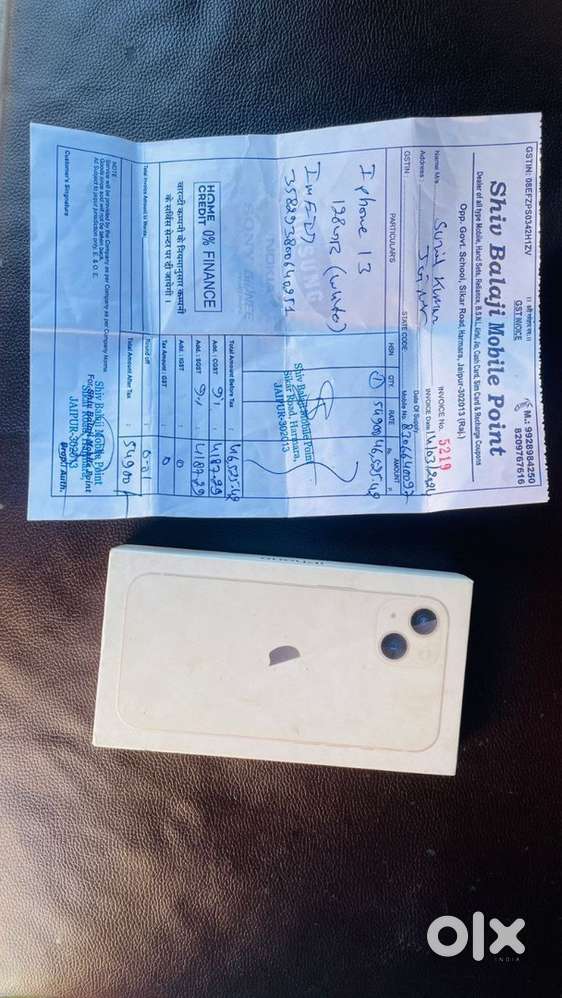 GSTIN: 08EFZPS0342H1ZV
।। श्री गणेशाय नमः ।।
GST INVOICE
M.: 9928984250
8209767616
Shiv Balaji Mobile Point
Dealer of all type Mobile, Hand Sets, Reliance, B.S.N.L, Idea, Jio, Cash Card, Sim Card & Recharge Coupons
Opp. Govt. School, Sikar Road, Harmara, Jaipur-302013 (Raj.)
Name M/s. Sunil Kumar
INVOICE No. 5219
Address : Jaipur
INVOICE Date
Date Of Supply
GSTIN :
STATE CODE
Mobile No.
PARTICULAR'S
HSN
QTY.
RATE
AMOUNT
Iphone 13
① 54900 46,525.42
128GB (White)
IMEI
Shiv Balaji Mobile Point
Sikar Road, Harmara,
JAIPUR-302013
HOME CREDIT 0% FINANCE
वारन्टी कम्पनी के नियमानुसार कम्पनी
के सर्विस सेन्टर पर दी जायेगी ।
Total Amount Before Tax 46,525.42
Add : CGST 9% 4187.29
Add : SGST 9% 4187.29
Add : IGST 0
Tax Amount : GST 0
Total Invoice Amount in Words:
Round off 0.01
Total Amount After Tax 54900
NOTE :
Service will be provided by the Company as per Company as per Company Name
Goods once sold will not be taken back.
All Subject to jaipur jurisdiction only. E. & O. E.
Shiv Balaji Mobile Point
For Shiv Balaji Mobile Point
Sikar Road, Harmara,
JAIPUR-302013
Customer's Signature
Prop./ Auth.
iPhone
olx
INDIA